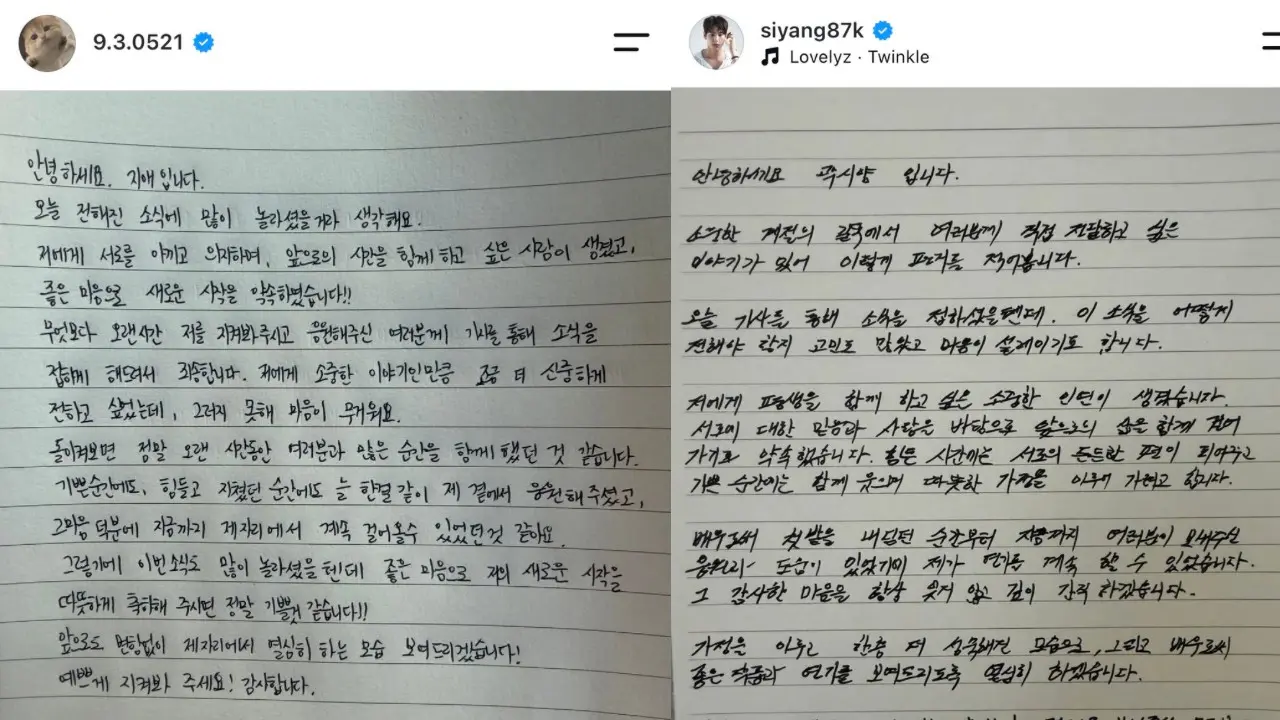 9.3.0521
안녕하세요. 지애입니다.
오늘 전해진 소식에 많이 놀라셨을거라 생각해요.
저에게 서로를 아끼고 의지하며, 앞으로의 시간을 함께 하고 싶은 사람이 생겼고,
좋은 마음으로 새로운 시작을 약속하였습니다!!
무엇보다 오랜시간 저를 지켜봐주시고 응원해주신 여러분께 기사를 통해 소식을
접하게 해드려서 죄송합니다. 저에게 소중한 이야기인만큼 조금 더 신중하게
전하고 싶었는데, 그러지 못해 마음이 무거워요.
돌이켜보면 정말 오랜 시간동안 여러분과 많은 순간을 함께 했던 것 같습니다.
기쁜순간에도, 힘들고 지쳤던 순간에도 늘 한결 같이 제 곁에서 응원해 주셨고,
그마음 덕분에 지금까지 제자리에서 계속 걸어올수 있었던것 같아요.
그렇기에 이번소식도 많이 놀라셨을텐데 좋은 마음으로 저의 새로운 시작을
따뜻하게 축하해 주시면 정말 기쁠것 같습니다!!
앞으로도 변함없이 제자리에서 열심히 하는 모습 보여드리겠습니다!
예쁘게 지켜봐 주세요! 감사합니다.
siyang87k
Lovelyz · Twinkle
안녕하세요 곽시양 입니다.
소중한 계절의 길목에서 여러분께 직접 전달하고 싶은
이야기가 있어 이렇게 편지를 적어봅니다.
오늘 기사를 통해 소식을 접하셨을텐데. 이 소식을 어떻게
전해야 할지 고민도 많았고 마음이 설레이기도 합니다.
저에게 평생을 함께 하고 싶은 소중한 인연이 생겼습니다.
서로에 대한 믿음과 사랑을 바탕으로 앞으로의 삶을 함께 걸어
가기로 약속했습니다. 힘든 시간에는 서로의 든든한 편이 되어주고
기쁜 순간에는 함께 웃으며 따뜻한 가정을 이루어 가려고 합니다.
배우로써 첫 발을 내딛던 순간부터 지금까지 여러분이 보내주신
응원과 도움이 있었기에 제가 연기를 계속 할 수 있었습니다.
그 감사한 마음을 항상 잊지 않고 깊이 간직 하겠습니다.
가정을 이루고 한층 더 성숙해진 모습으로, 그리고 배우로써
좋은 작품과 연기를 보여드리도록 열심히 하겠습니다.